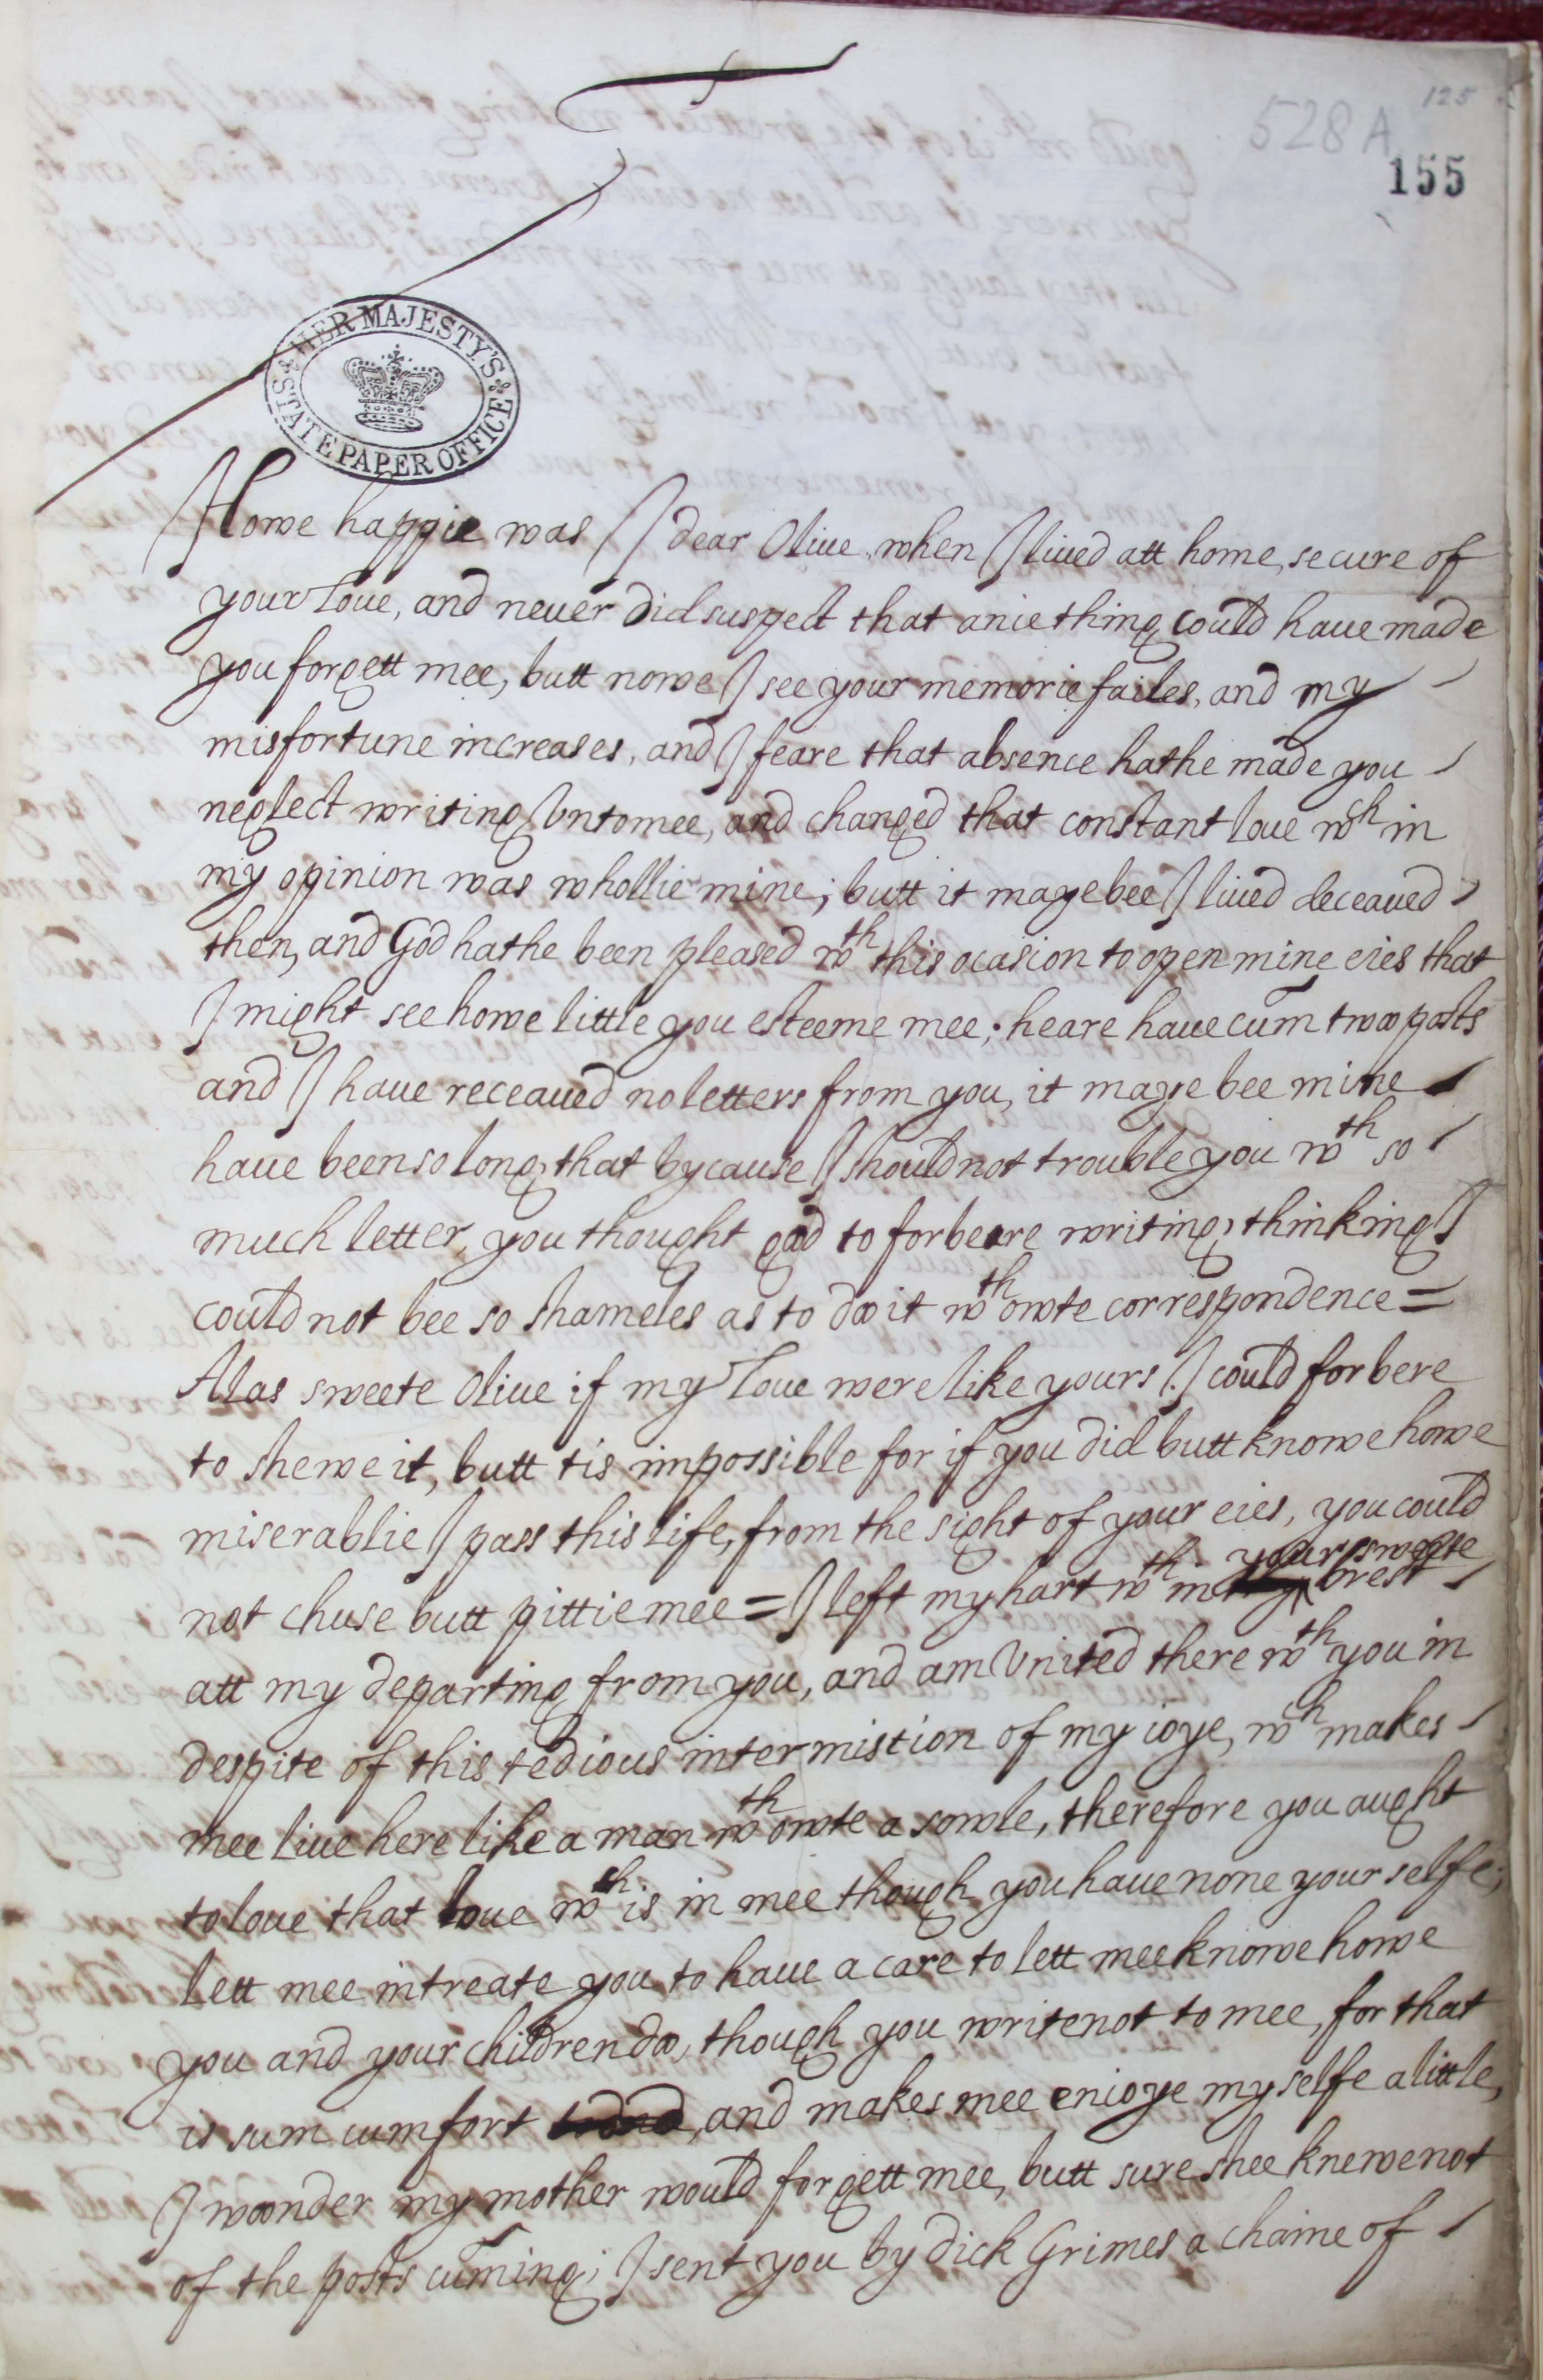 125
528A
155
HER MAJESTY'S
STATE PAPER OFFICE
Howe happie was I dear Oliue when I liued att home, secure of
your loue, and neuer did suspect that anie thing could haue made
you forgett mee, butt nowe I see your memorie failes, and my
misfortune increases, and I feare that absence hathe made you
neglect writing Vnto mee, and changed that constant loue wch in
my opinion was whollie mine; butt it maye bee I liued deceaued
then, and God hathe been pleased wth this ocasion to open mine eies that
I might see howe little you esteeme mee; heare haue cum twoo posts
and I haue receaued no letters from you, it maye bee mine
haue been so long, that bycause I should not trouble you wth so
much letter, you thought god to forbeare writing, thinking I
could not bee so shameles as to doo it wth owte correspondence =
Alas sweete Oliue if my loue were like yours I could forbere
to shewe it, butt tis impossible for if you did butt knowe howe
miserablie I pass this life, from the sight of your eies, you could
not chuse butt pittie mee = I left my hart wth in your sweete brest
att my departing from you, and am Vnited there wth you in
despite of this tedious intermistion of my ioye, wch makes
mee liue here like a man wth owte a sowle, therefore you aught
to loue that loue wch is in mee though you haue none your selfe;
lett mee intreate you to haue a care to lett mee knowe howe
you and your children doo, though you write not to mee, for that
is sum cumfort, and makes mee enioye my selfe a little,
I woonder my mother would forgett mee, butt sure shee knewe not
of the posts cuming; I sent you by Dick Grimes a chaine of